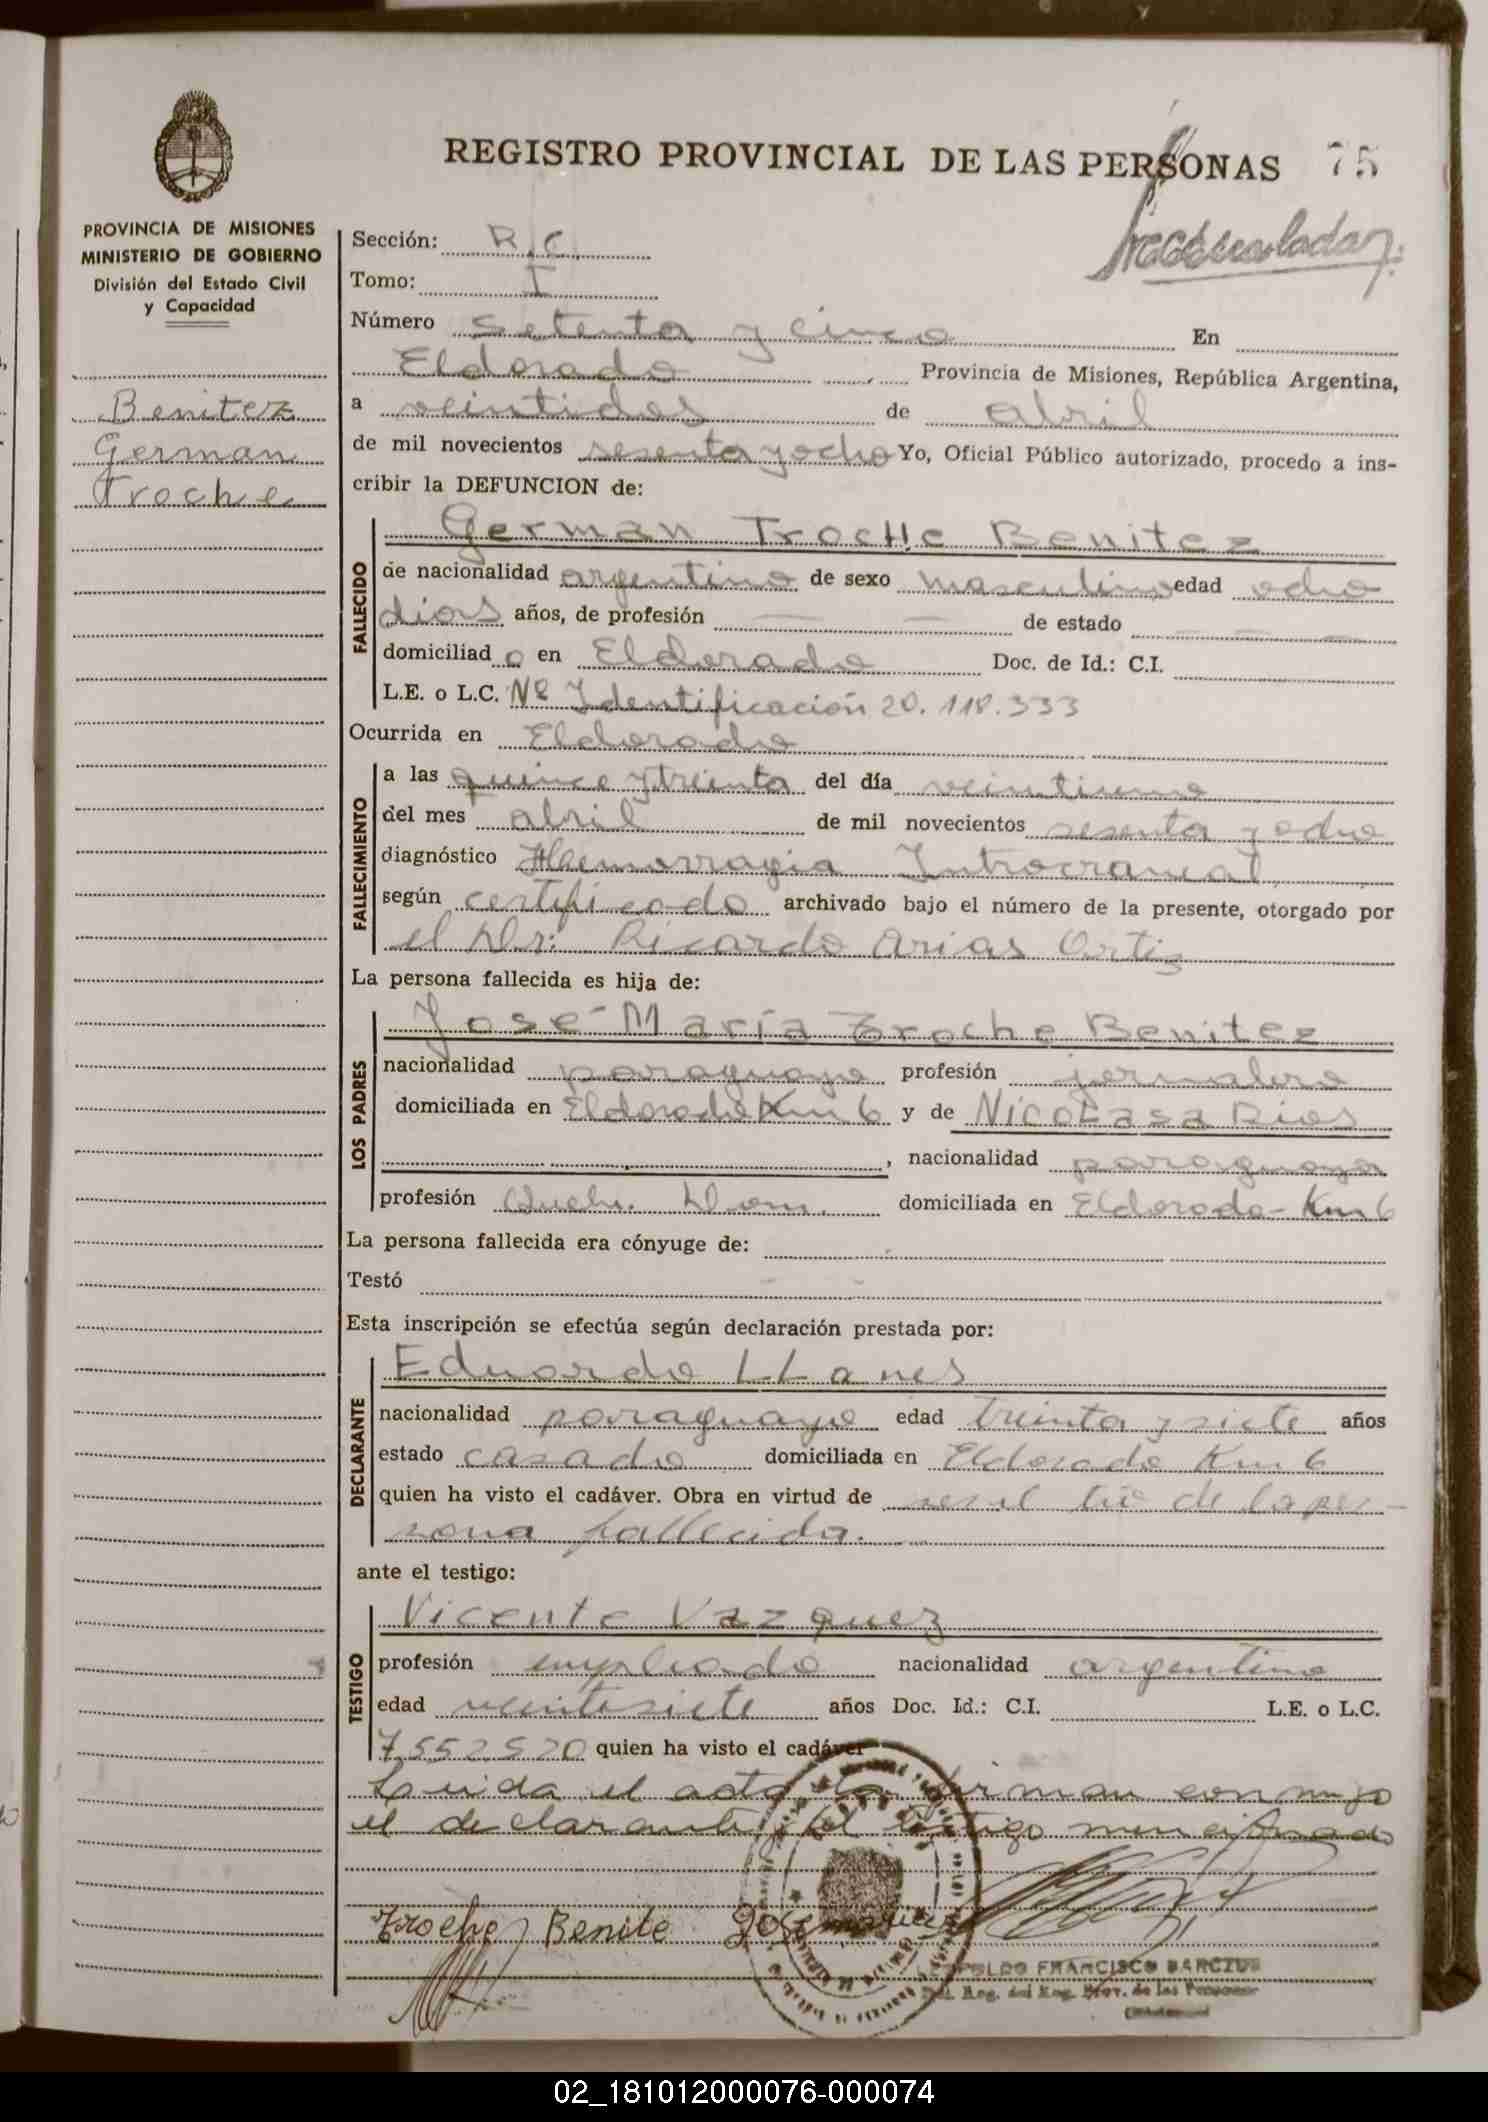 REGISTRO PROVINCIAL DE LAS PERSONAS 75
PROVINCIA DE MISIONES
MINISTERIO DE GOBIERNO
División del Estado Civil
y Capacidad
Benitez
German
Troche
Sección: R.C.
Tomo: I
Número setenta y cinco En
Eldorado Provincia de Misiones, República Argentina,
a veintidos de abril
de mil novecientos sesenta y ocho Yo, Oficial Público autorizado, procedo a ins-
cribir la DEFUNCION de:
FALLECIDO
German Troche Benitez
de nacionalidad argentino de sexo masculino edad ocho
dias años, de profesión — — de estado — — —
domiciliad o en Eldorado Doc. de Id.: C.I.
L.E. o L.C. Nº Identificación 20.118.333
Ocurrida en Eldorado
FALLECIMIENTO
a las quince y treinta del día veintiuno
del mes abril de mil novecientos sesenta y ocho
diagnóstico Haemorragia Intracraneal
según certificado archivado bajo el número de la presente, otorgado por
el Dr: Ricardo Arias Ortiz
La persona fallecida es hija de:
LOS PADRES
José María Troche Benitez
nacionalidad paraguayo profesión jornalero
domiciliada en Eldorado Km 6 y de Nicolasa Rios
, nacionalidad paraguaya
profesión Queh. Dom. domiciliada en Eldorado - Km 6
La persona fallecida era cónyuge de:
Testó
Esta inscripción se efectúa según declaración prestada por:
DECLARANTE
Eduardo LLanes
nacionalidad paraguayo edad treinta y siete años
estado casado domiciliada en Eldorado Km 6
quien ha visto el cadáver. Obra en virtud de ser el tio de la per-
sona fallecida.
ante el testigo:
TESTIGO
Vicente Vazquez
profesión empleado nacionalidad argentino
edad veintisiete años Doc. Id.: C.I. L.E. o L.C.
7552520 quien ha visto el cadáver
Leida el acta la firman conmigo
el declarante y el testigo mencionado
Troche Benite Jose
LEOPOLDO FRANCISCO BARCZUK
Del. Reg. del Reg. Prov. de las Personas
02_181012000076-000074